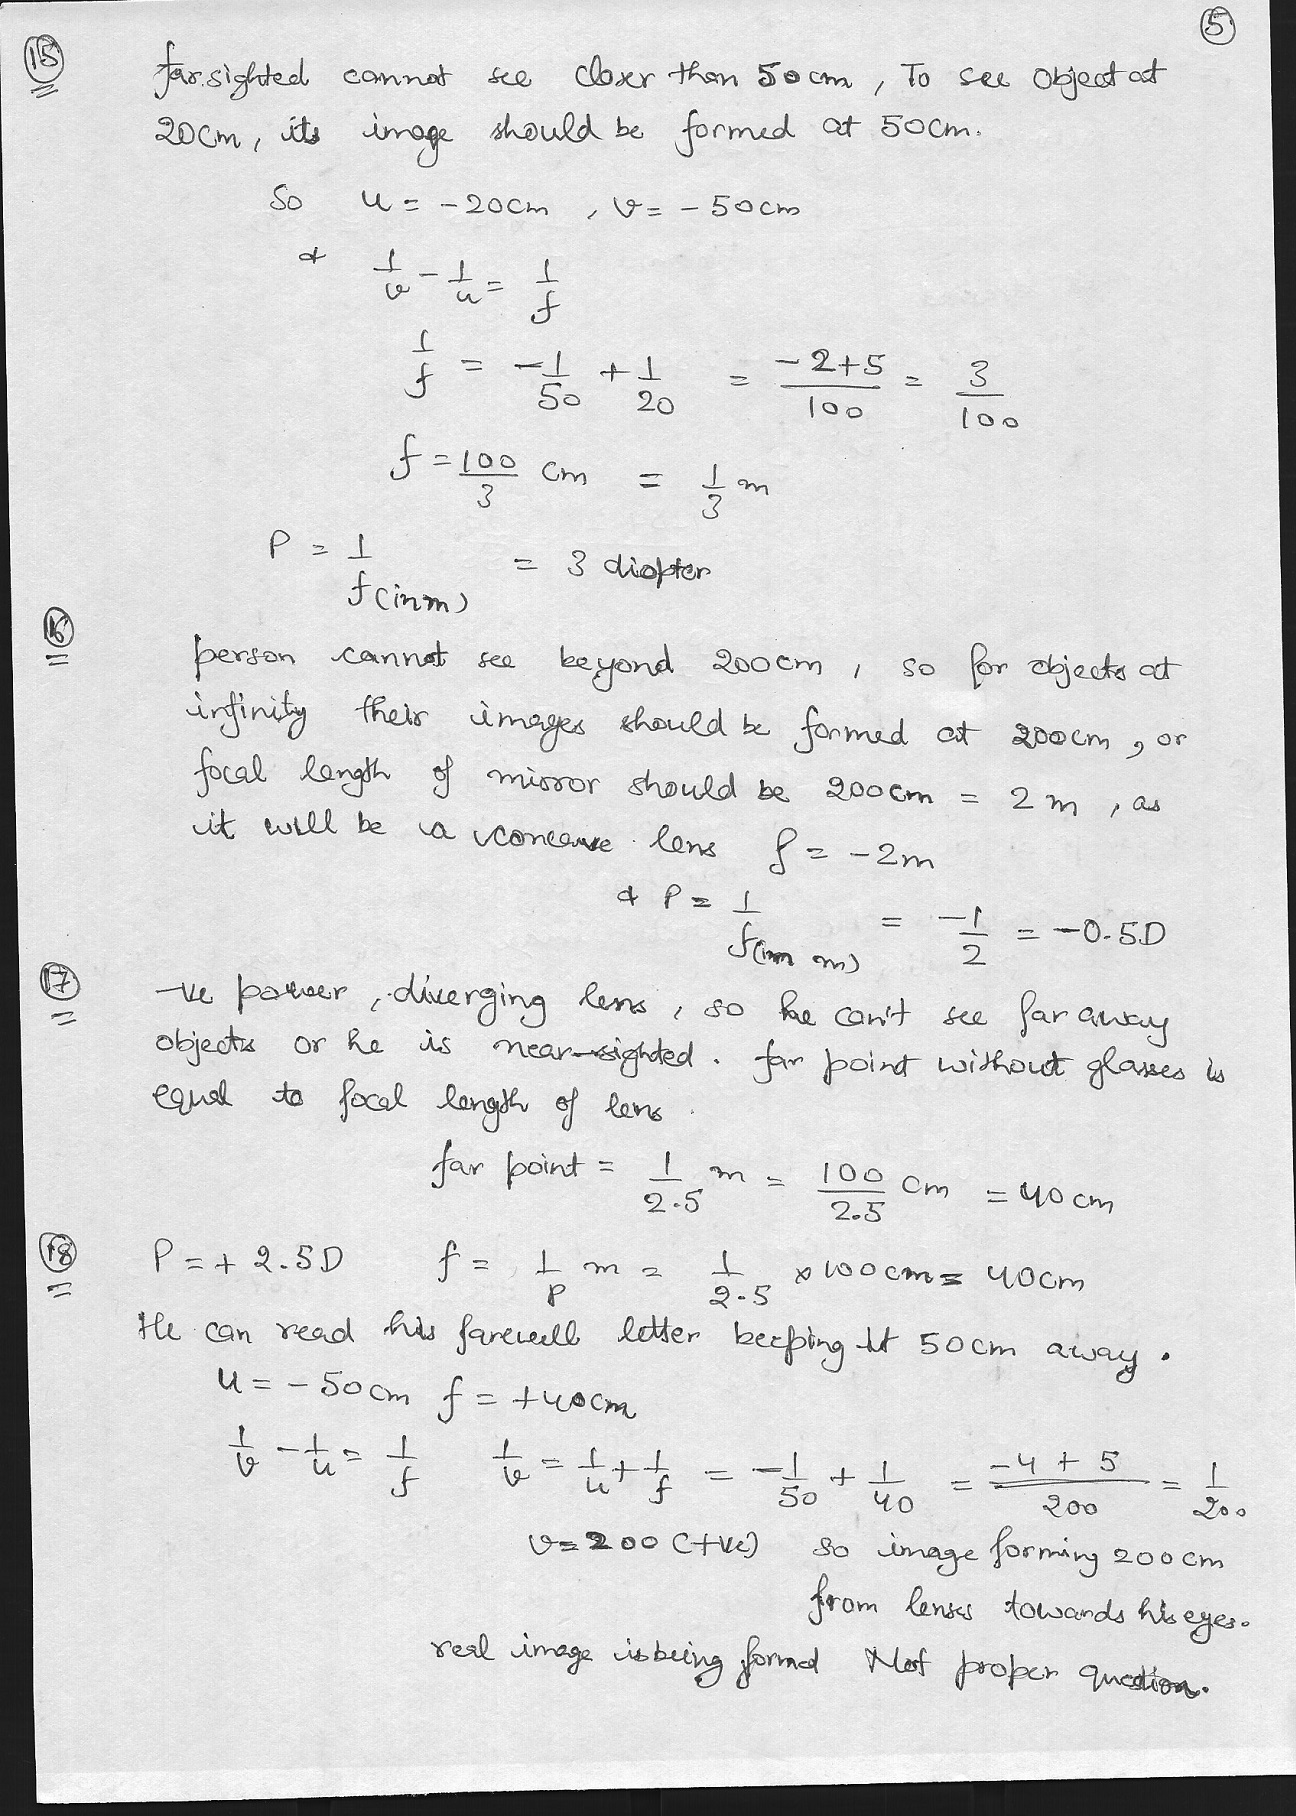 5
15 farsighted cannot see closer than 50cm, To see object at
20cm, its image should be formed at 50cm.
So u = -20cm, v = -50cm
& 1/v - 1/u = 1/f
1/f = -1/50 + 1/20 = (-2+5)/100 = 3/100
f = 100/3 cm = 1/3 m
P = 1/f(in m) = 3 diopter
16 person cannot see beyond 200cm, so for objects at
infinity their images should be formed at 200cm, or
focal length of mirror should be 200cm = 2m, as
it will be a concave lens f = -2m
& P = 1/f(in m) = -1/2 = -0.5D
17 -ve power, diverging lens, so he can't see far away
objects or he is near-sighted. far point without glasses is
equal to focal length of lens.
far point = 1/2.5 m = 100/2.5 cm = 40cm
18 P = +2.5D f = 1/P m = 1/2.5 × 100cm = 40cm
He can read his farewell letter keeping it 50cm away.
u = -50cm f = +40cm
1/v - 1/u = 1/f 1/v = 1/u + 1/f = -1/50 + 1/40 = (-4+5)/200 = 1/200
v = 200 (+ve) so image forming 200cm
from lenses towards his eyes.
real image is being formed Not proper question.